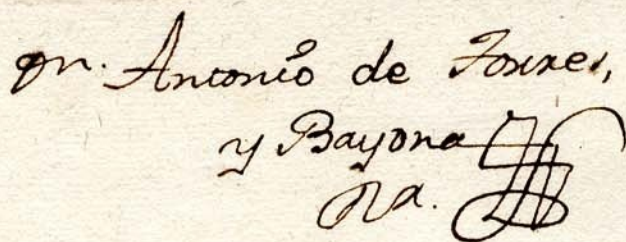 Dn. Antonio de Torres,
y Bayona